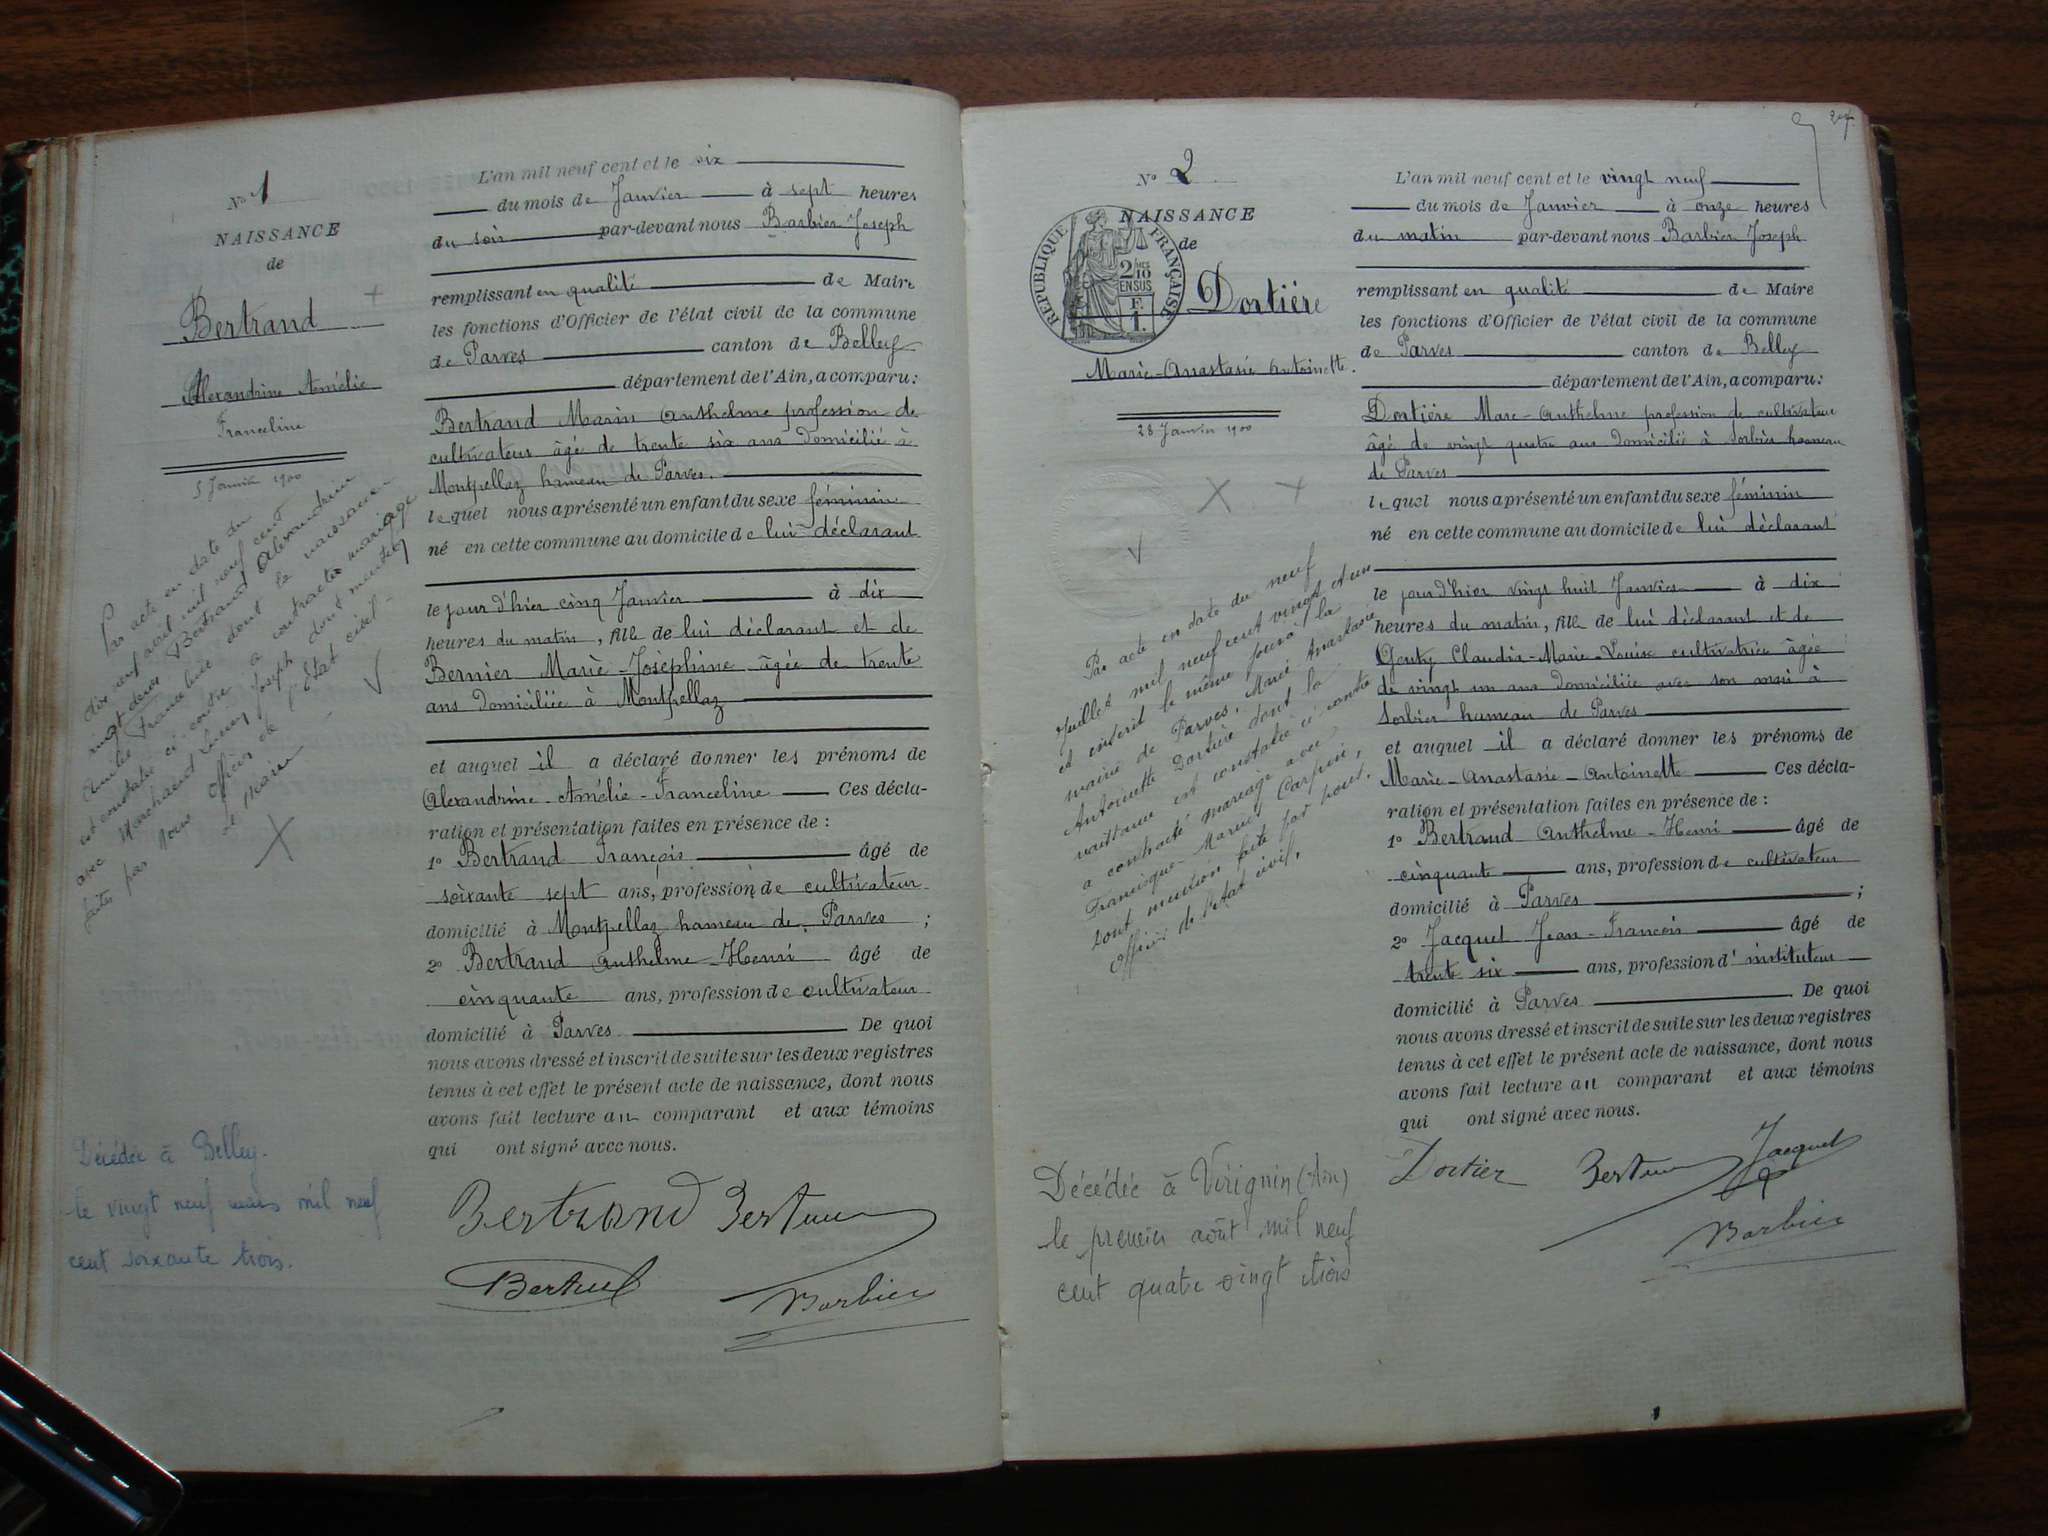 No 1
NAISSANCE
de
Bertrand
Alexandrine Amélie
Franceline
5 Janvier 1900
Par acte en date du
dix neuf avril mil neuf cent
vingt deux Bertrand Alexandrine
Amélie Franceline dont la naissance
est constatée ci contre a contracté mariage
avec Marchand Joseph dont mention
faite par Nous Officier de l'état civil.
Décédée à Belley.
le vingt neuf mars mil neuf
cent soixante trois.
L'an mil neuf cent et le six
du mois de Janvier à sept heures
du soir par-devant nous Barbier Joseph
remplissant en qualité de Maire
les fonctions d'Officier de l'état civil de la commune
de Parves canton de Belley
département de l'Ain, a comparu:
Bertrand Marin Anthelme profession de
cultivateur âgé de trente six ans domicilié à
Montpellaz hameau de Parves.
lequel nous a présenté un enfant du sexe féminin
né en cette commune au domicile de lui déclarant
le jour d'hier cinq Janvier à dix
heures du matin, fille de lui déclarant et de
Bernier Marie-Joséphine âgée de trente
ans domiciliée à Montpellaz
et auquel il a déclaré donner les prénoms de
Alexandrine-Amélie-Franceline Ces décla-
ration et présentation faites en présence de :
1° Bertrand François âgé de
soixante sept ans, profession de cultivateur
domicilié à Montpellaz hameau de Parves ;
2° Bertrand Anthelme-Henri âgé de
cinquante ans, profession de cultivateur
domicilié à Parves De quoi
nous avons dressé et inscrit de suite sur les deux registres
tenus à cet effet le présent acte de naissance, dont nous
avons fait lecture au comparant et aux témoins
qui ont signé avec nous.
Bertrand Bertrand
Bertrand Barbier
27
No 2
NAISSANCE
de
RÉPUBLIQUE FRANÇAISE
2/10
EN SUS
F.
1.
Dortière
Marie-Anastasie Antoinette.
28 Janvier 1900
Par acte en date du neuf
Juillet mil neuf cent vingt et un
et inscrit le même jour à la
mairie de Parves, Marie Anastasie
Antoinette Dortière dont la
naissance est constatée ci contre
a contracté mariage avec
Francisque Marius Carpin,
dont mention faite par nous,
officier de l'état civil.
Décédée à Virignin (Ain)
le premier août mil neuf
cent quatre vingt trois
L'an mil neuf cent et le vingt neuf
du mois de Janvier à onze heures
du matin par-devant nous Barbier Joseph
remplissant en qualité de Maire
les fonctions d'Officier de l'état civil de la commune
de Parves canton de Belley
département de l'Ain, a comparu:
Dortière Marc-Anthelme profession de cultivateur
âgé de vingt quatre ans domicilié à Sorbier hameau
de Parves
lequel nous a présenté un enfant du sexe féminin
né en cette commune au domicile de lui déclarant
le jour d'hier vingt huit Janvier à dix
heures du matin, fille de lui déclarant et de
Genty Claudia-Marie-Louise cultivatrice âgée
de vingt un ans domiciliée avec son mari à
Sorbier hameau de Parves
et auquel il a déclaré donner les prénoms de
Marie-Anastasie-Antoinette Ces décla-
ration et présentation faites en présence de :
1° Bertrand Anthelme-Henri âgé de
cinquante ans, profession de cultivateur
domicilié à Parves ;
2° Jacquet Jean-François âgé de
trente six ans, profession d'instituteur
domicilié à Parves De quoi
nous avons dressé et inscrit de suite sur les deux registres
tenus à cet effet le présent acte de naissance, dont nous
avons fait lecture au comparant et aux témoins
qui ont signé avec nous.
Dortier Bertrand Jacquet
Barbier